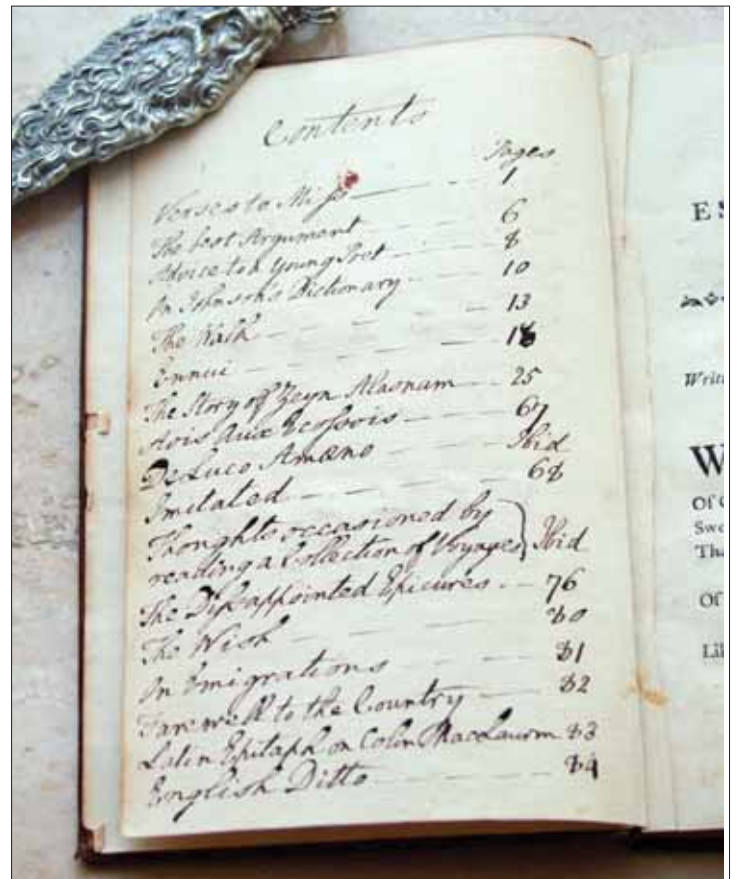 Contents
Pages
Verses to Miss 1
The best Argument 6
Advice to a Young Poet 8
On Johnson's Dictionary 10
The Walk 13
Ennui 18
The Story of Zeyn Alasnam 25
Avis aux Ecossois 67
De Luco Amæno Ibid
Imitated 68
Thoughts occasioned by
reading a Collection of Voyages } Ibid
The Disappointed Epicures 76
The Wish 80
On Emigrations 81
Farewell to the Country 82
Latin Epitaph on Colin MacLaurin 83
English Ditto 84
ES
Writ
W
Of
Swe
Tha
Of
Lik